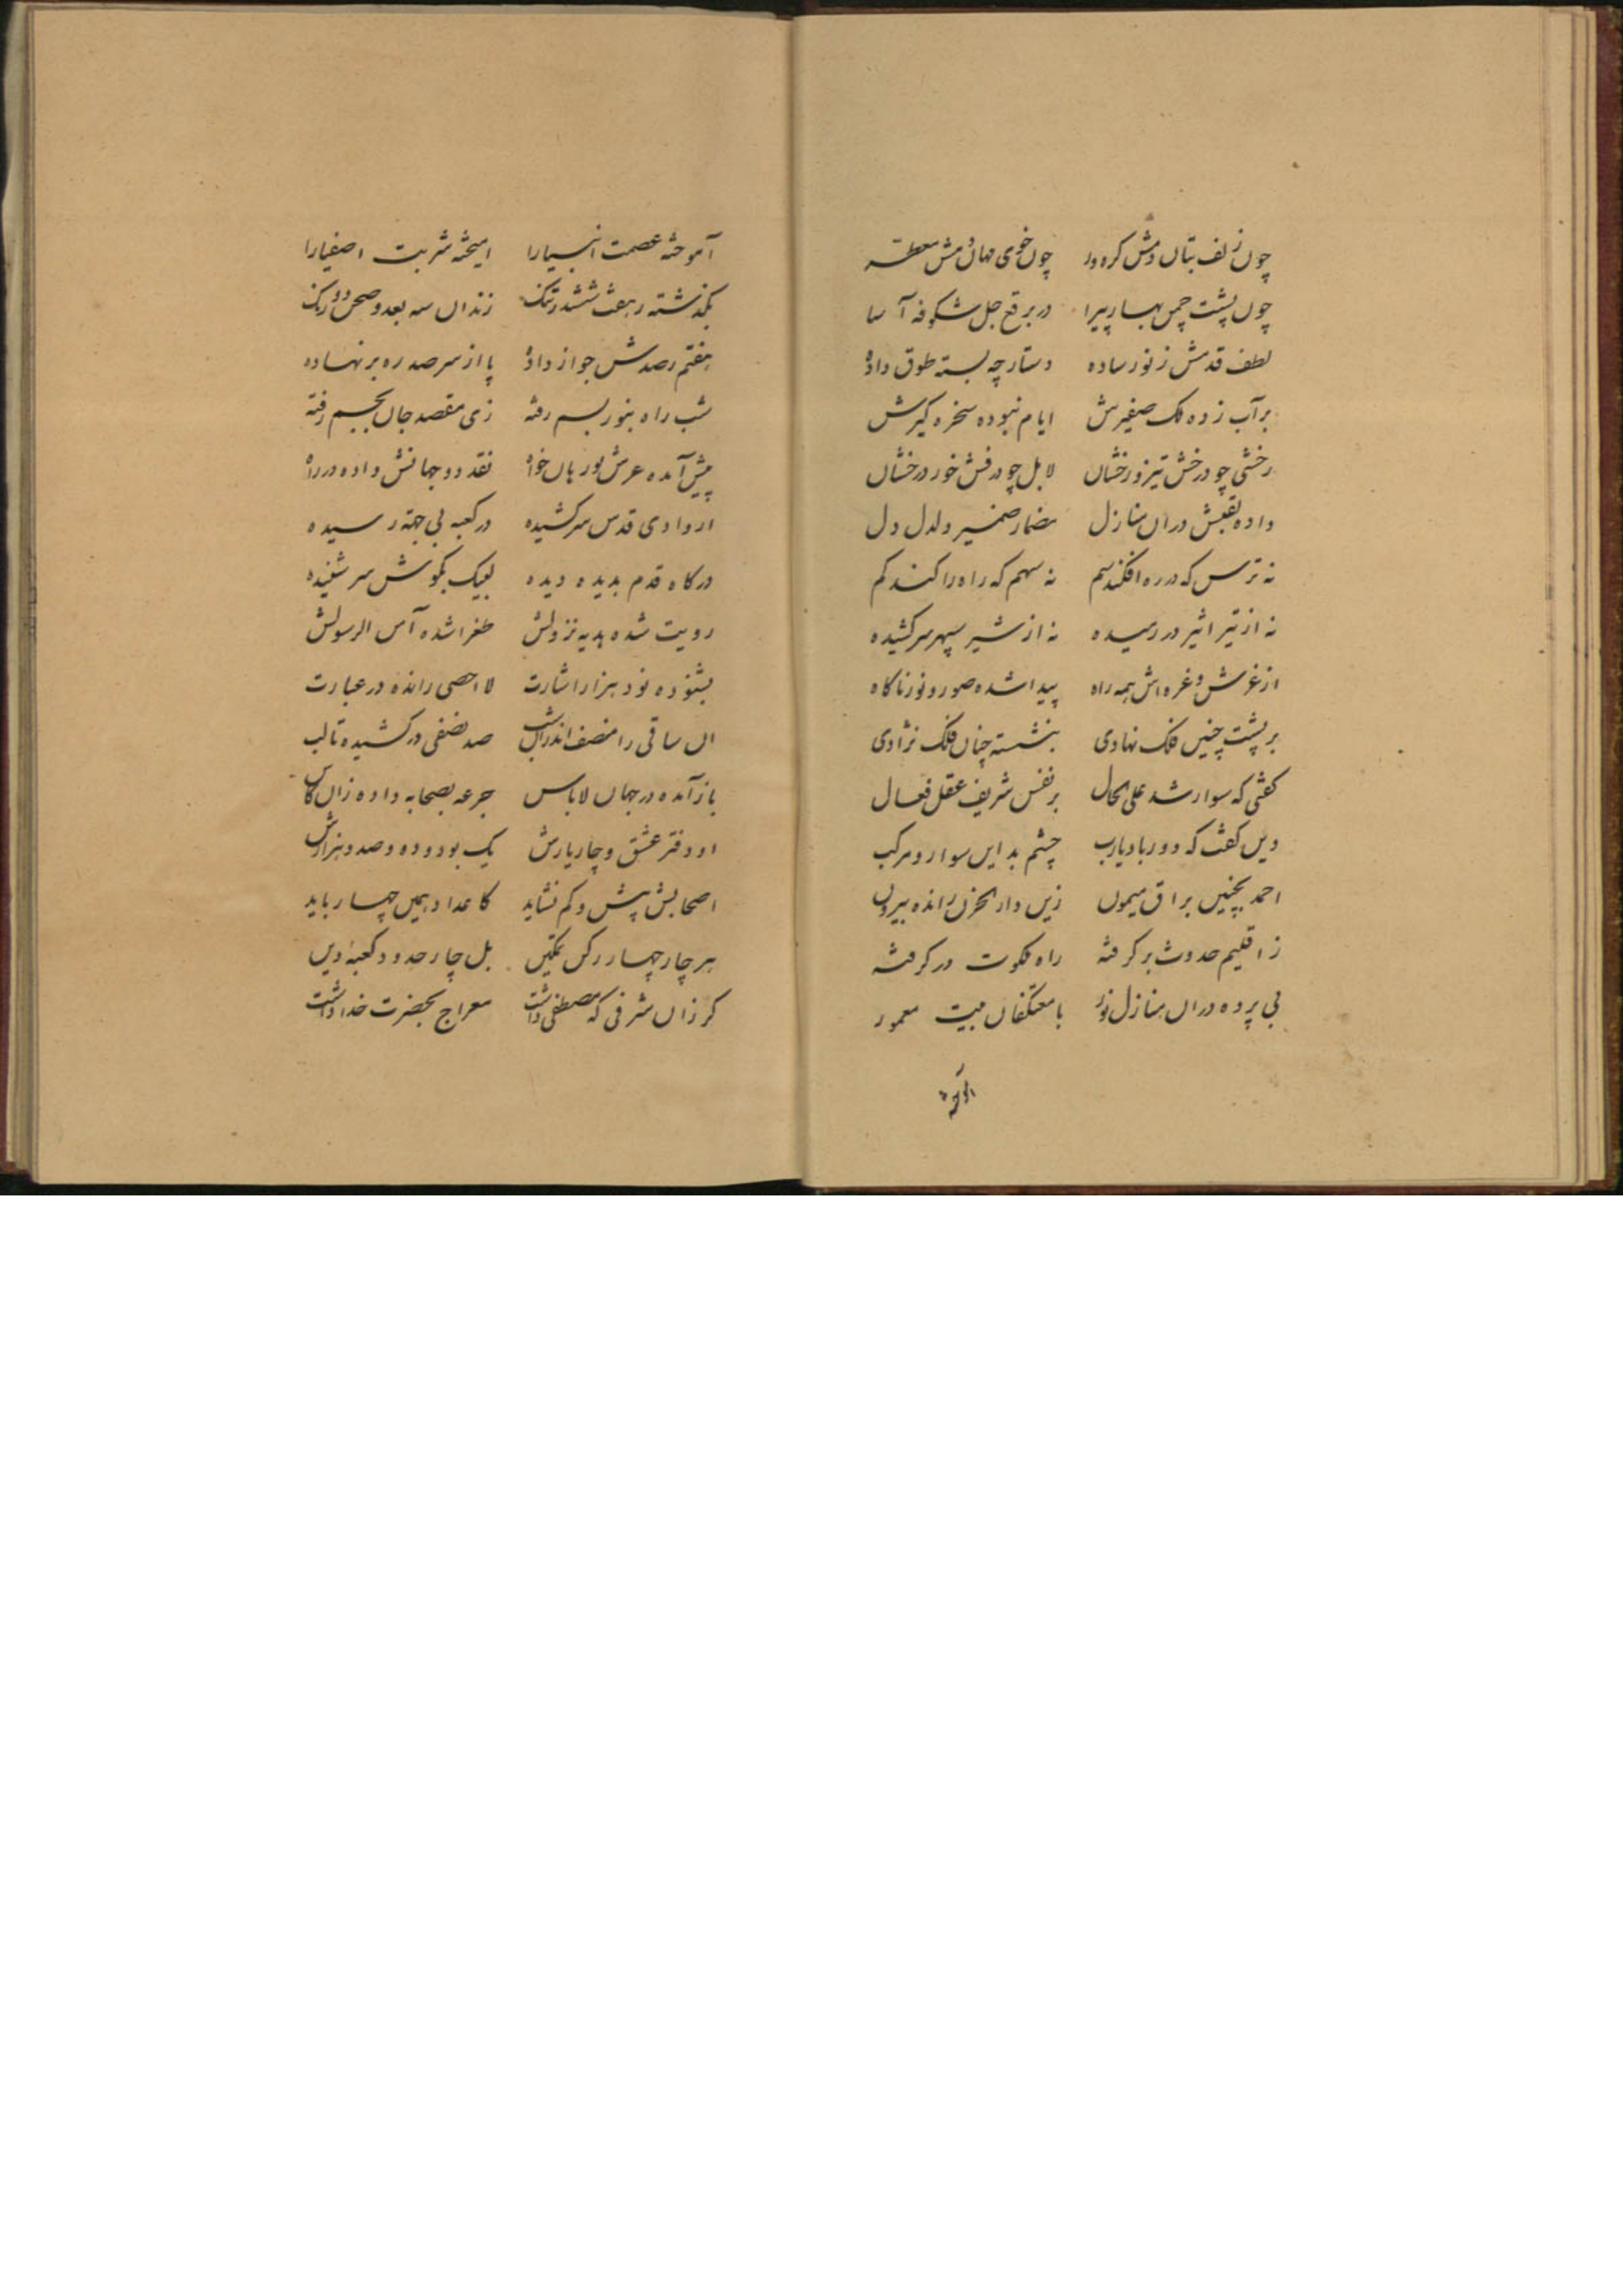 چون زلف بتان دمش کره ور چون خوی مهان دمش معطر
چون پشت چمن بهار پیرا در برقع جل شکوفه آسا
لطف قدمش ز نور ساده دستارچه بسته طوق داده
بر آب زده ملک صفیرش ایام نبوده سخره کیرش
رخشی چو درخش تیز و رخشان لا بل چو درفش خور درخشان
داده نقیبش دران منازل مضمار ضمیر و دلدل دل
نه ترس که در ره افکند سم نه سهم که راه را کند کم
نه از تیر اثیر در رمیده نه از شیر سپهر سر کشیده
از غرش و غره اش همه راه پیدا شده صور و نور ناکاه
بر پشت چنین فلک نهادی بنشسته چنان فلک نژادی
کفتی که سوار شد علی الحال بر نفس شریف عقل فعال
وین کفت که دور باد یارب چشم بد ازین سوار و مرکب
احمد بچنین براق میمون زین دار الحزن رانده بیرون
ز اقلیم حدوث بر کرفته راه ملکوت در کرفته
بی پرده دران منازل نور با معتکفان بیت معمور
آموخته
آموخته عصمت انبیا را امیخته شربت اصفیا را
بکذشته ز هفت ششدر تنک زندان سه بعد و صحن دو رنک
هفتم رصدش جواز داده پا از سر صدره بر نهاده
شب راه بنور بسم رفته زی مقصد جان بجسم رفته
پیش آمده عرش بوریاخوان نقد دو جهانش داده در راه
از وادی قدس سر کشیده در کعبه بی جهة رسیده
درکاه قدم بدیده دیده لبیک بکوش سر شنیده
رویت شده هدیه نزولش طغرا شده آمن الرسولش
بشنوده نود هزار اشارت لا احصی رانده در عبارت
ان ساقی را منصف اندران شب صد نصفی در کشیده تا لب
باز آمده در جهان لاباس جرعه بصحابه داده زان کاس
او دفتر عشق و چار یارش یک بود و ده و صد و هزارش
اصحابش بیش و کم نشاید کاعداد همین چهار باید
هر چار چهار رکن تمکین بل چار حدود کعبه دین
کر زان شرفی که مصطفی داشت معراج بحضرت خدا داشت